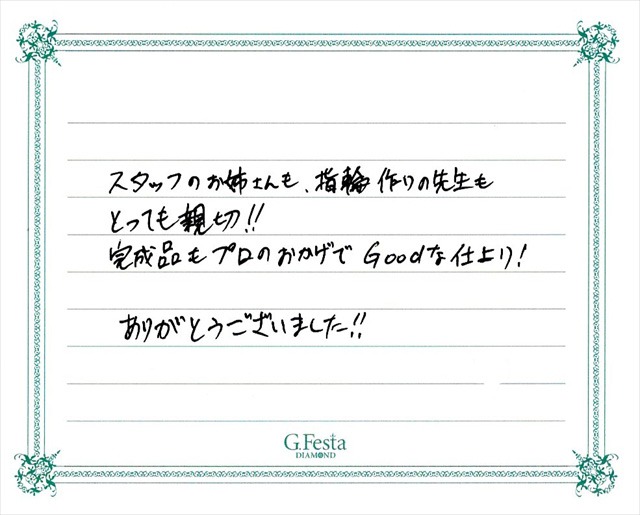 スタッフのお姉さんも、指輪作りの先生も
とっても親切!!
完成品もプロのおかげでGoodな仕上り!
ありがとうございました!!
G.Festa
DIAMOND